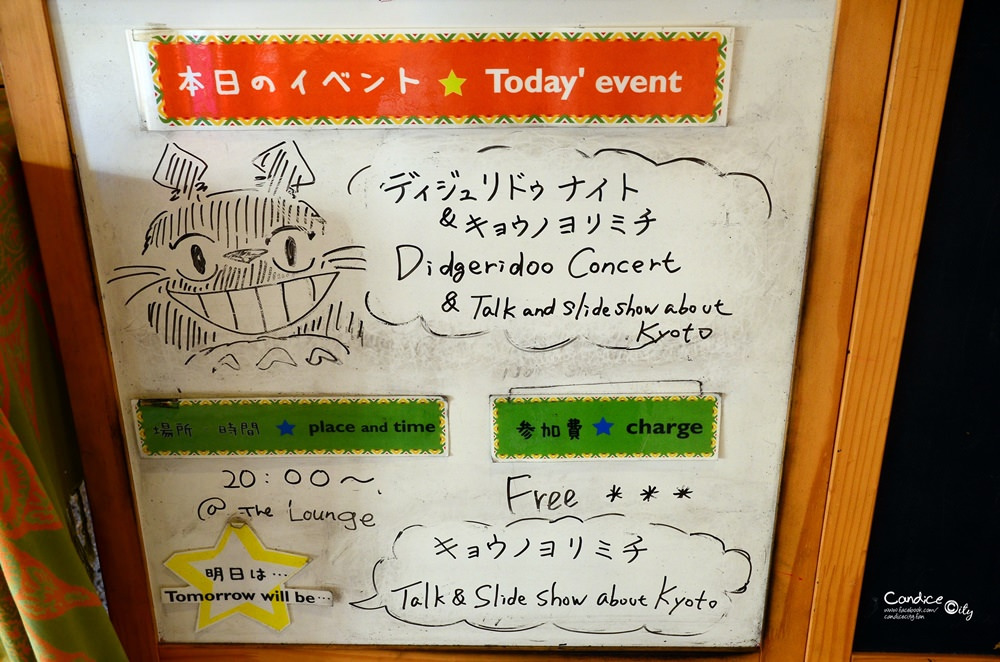 本日のイベント ★ Today' event
ディジュリドゥ ナイト
& キョウノヨリミチ
Didgeridoo Concert
& Talk and slideshow about
Kyoto
場所 時間 ★ place and time
参加費 ★ charge
20:00〜
@ The Lounge
Free * * *
明日は…
Tomorrow will be…
キョウノヨリミチ
Talk & Slide show about Kyoto
Candice City
www.facebook.com/
candicecity.fan